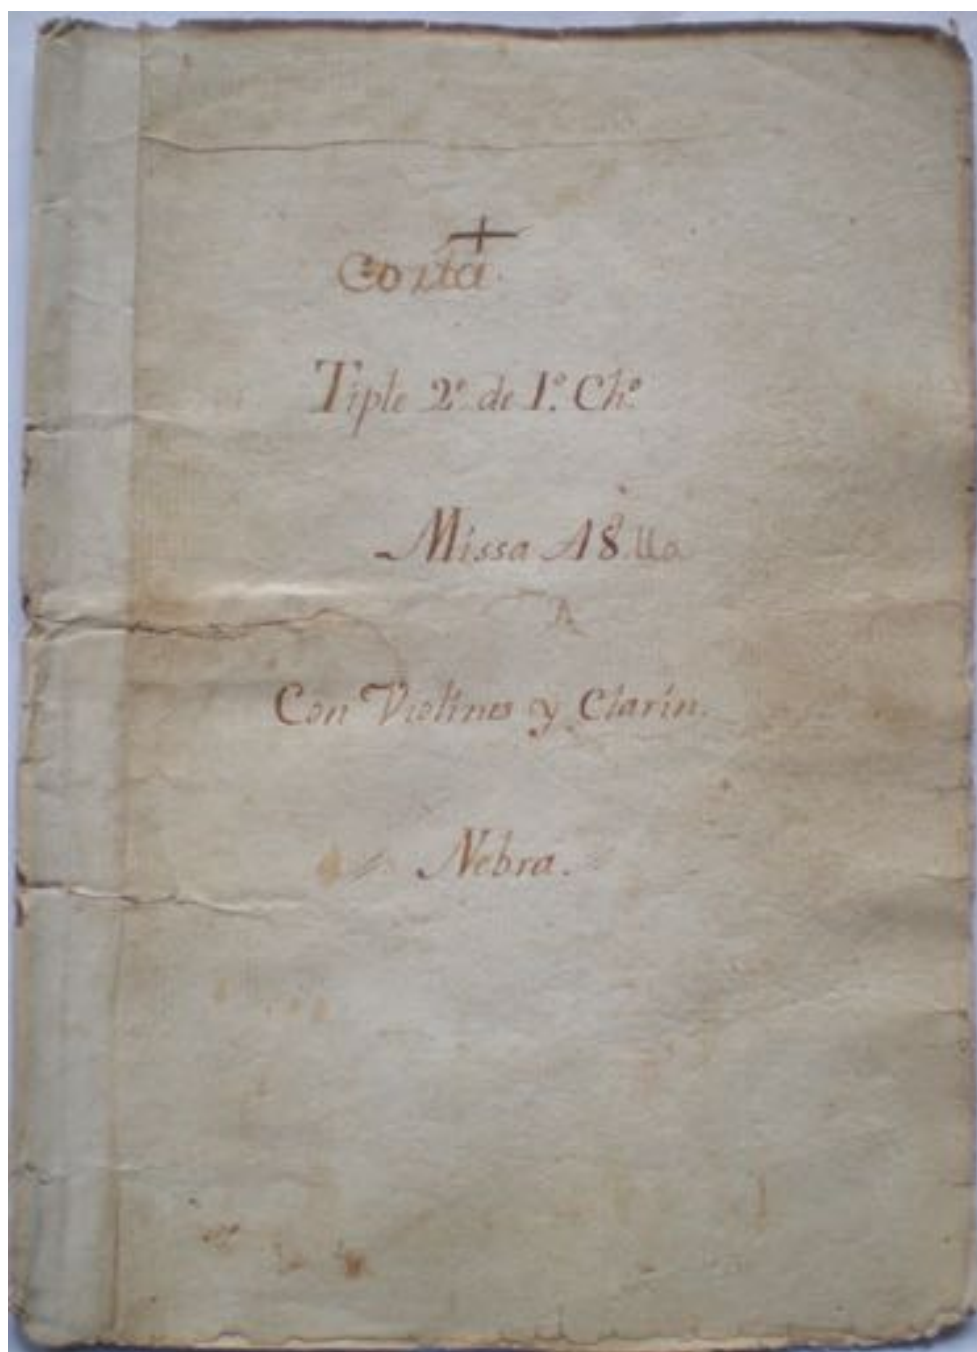 +
Corta.
Tiple 2º de 1º. Chº
Missa A8.
A
Con Violines y Clarin.
Nebra.